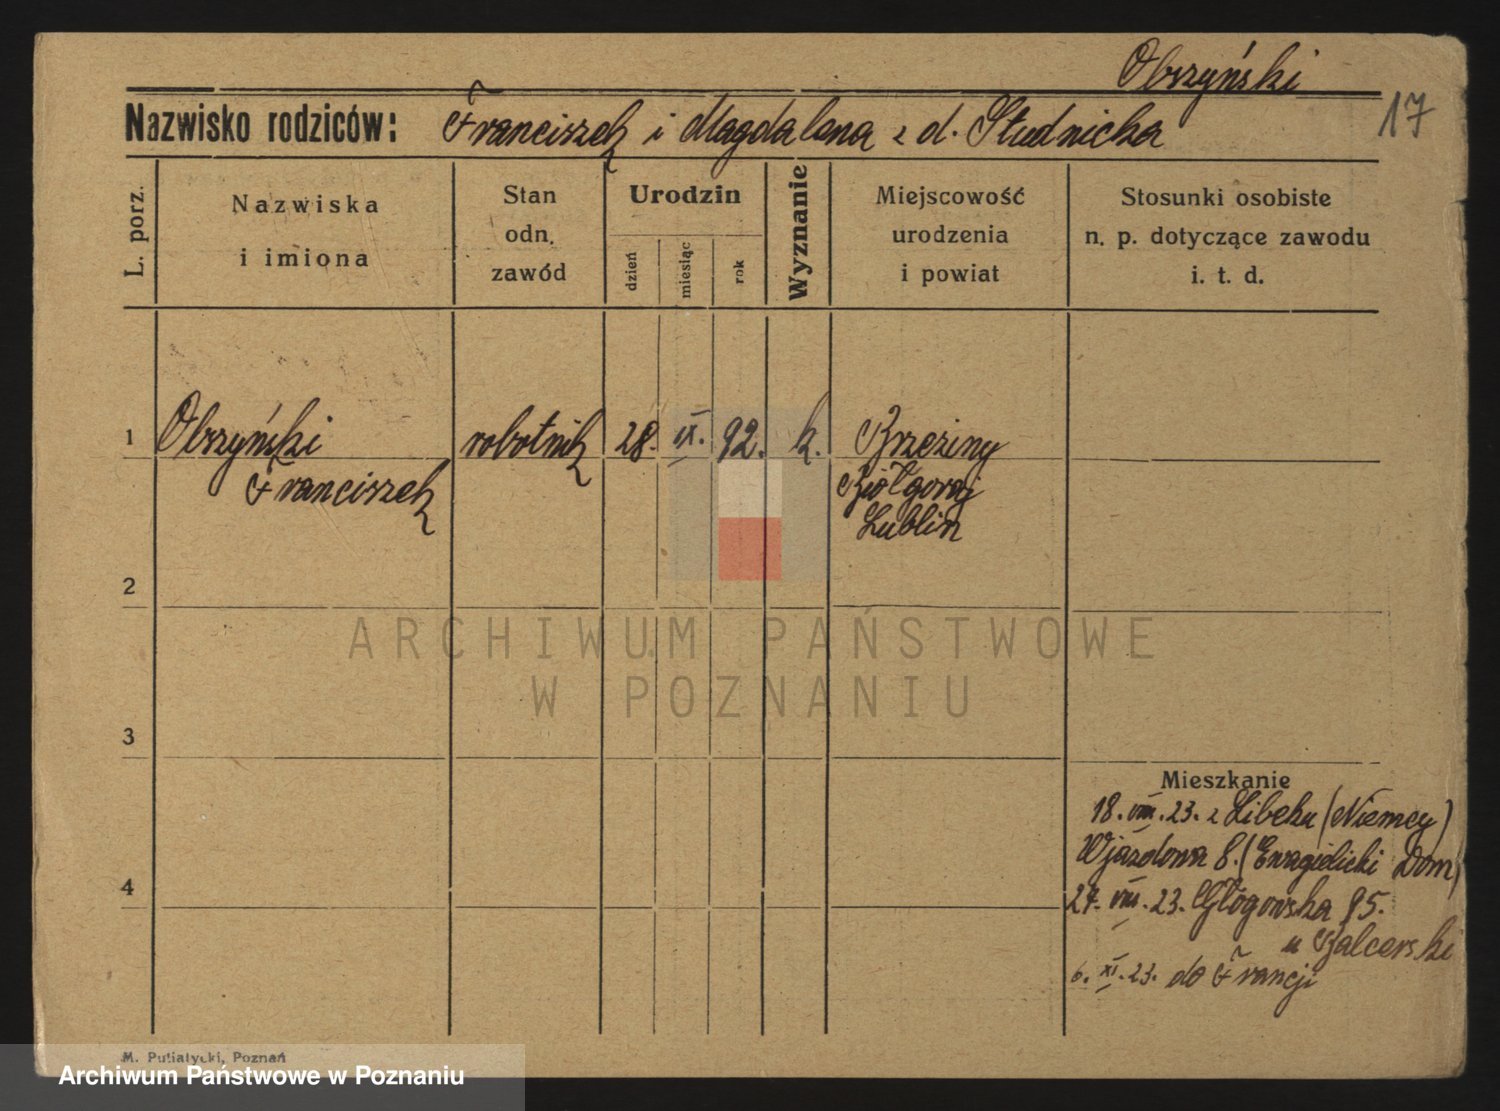 Obszyński
17
Nazwisko rodziców: Franciszek i Magdalena z d. Studnicka
L. porz.
Nazwiska
i imiona
Stan
odn.
zawód
Urodzin
dzień
miesiąc
rok
Wyznanie
Miejscowość
urodzenia
i powiat
Stosunki osobiste
n. p. dotyczące zawodu
i. t. d.
1 Obszyński robotnik 28. IX. 92. k. Brzeziny
Franciszek Biółgoraj
Lublin
2
ARCHIWUM PAŃSTWOWE
W POZNANIU
3
Mieszkanie
18. VIII. 23. z Libeku (Niemcy)
Wjazdowa 8. (Ewagielicki Dom)
4
27. VIII. 23. Głogowska 95.
u Balcerski
6. XI. 23. do Francji
M. Putiatycki, Poznań
Archiwum Państwowe w Poznaniu